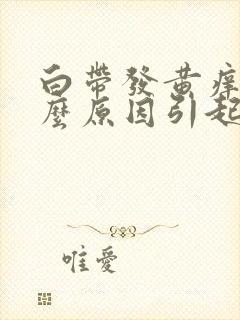 白帶發黃痒
麼原因引起
唯愛